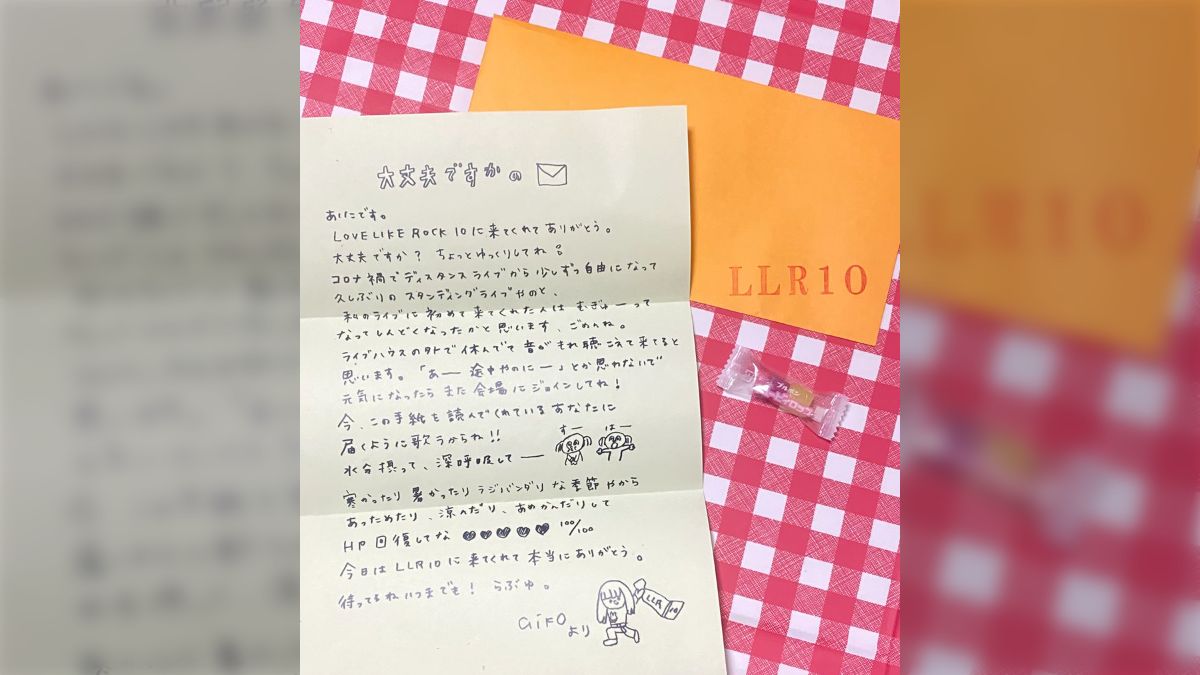 大丈夫ですかの
あいこです。
LOVE LIKE ROCK 10に来てくれてありがとう。
大丈夫ですか？ ちょっとゆっくりしてね
コロナ禍でディスタンスライブから少しずつ自由になって
久しぶりのスタンディングライブやのと、
私のライブに初めて来てくれた人はむぎゅーって
なってしんどくなったかと思います、ごめんね。
ライブハウスの外で休んでて音がもれ聴こえて来てると
思います。「あー 途中やのにー」とか思わないで
元気になったらまた会場にジョインしてね！
今、この手紙を読んでくれているあなたに
届くように歌うからね!!
すー はー
水分摂って、深呼吸してー
寒かったり暑かったりラジバンダリな季節やから
あっためたり、涼んだり、あめかんだりして
HP回復してな ♥♥♥♥♥ 100/100
今日はLLR10に来てくれて本当にありがとう。
待ってるねいつまでも！ らぶゅ。
aikoより
LLR 10
LLR10